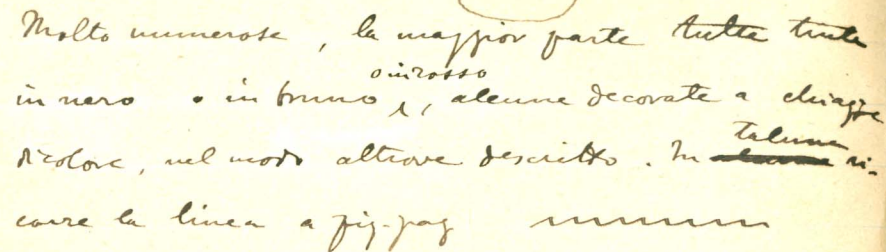 Molto numerose, la maggior parte tutte tinte
in nero o in bruno o in rosso, alcune decorate a chiazze
di colore, nel modo altrove descritto. In talune ri-
corre la linea a zig-zag